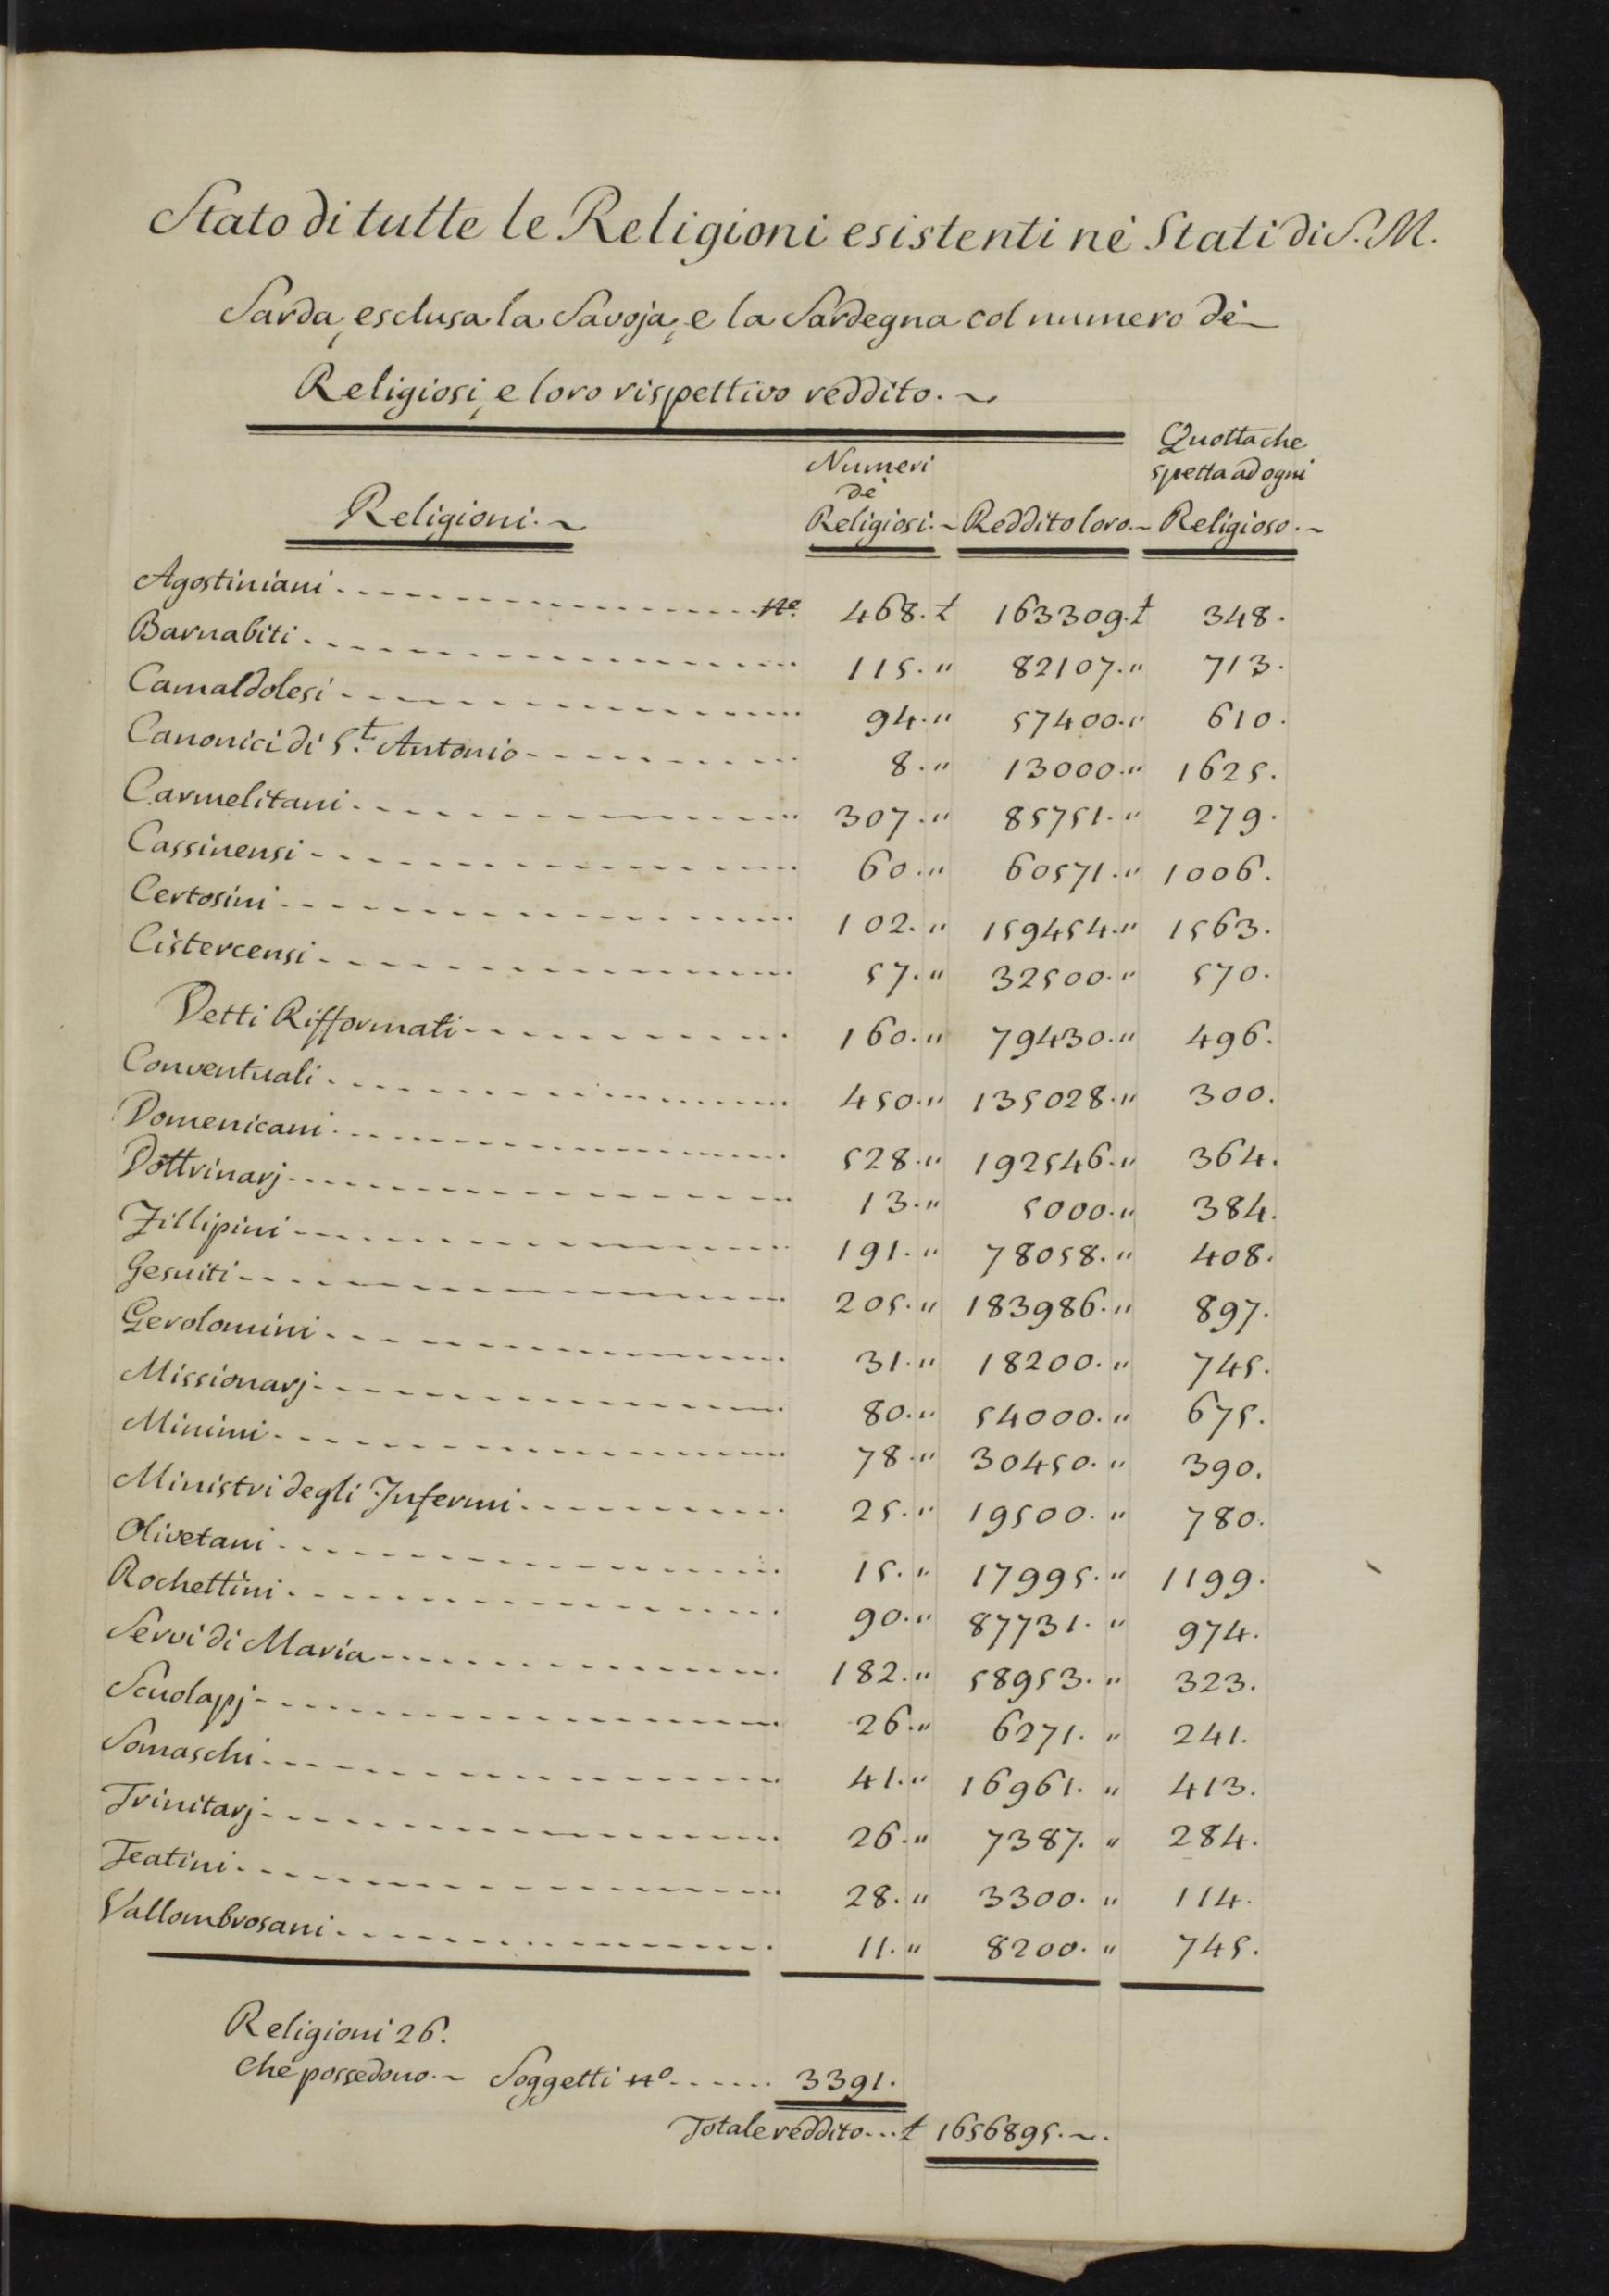 Stato di tutte le Religioni esistenti nè Stati di S. M.
Sarda, esclusa la Savoja, e la Sardegna col numero dè
Religiosi, e loro rispettivo reddito. ~
Religioni. ~ Numeri dè Religiosi. ~ Reddito loro. ~ Quotta che spetta ad ogni Religioso. ~
Agostiniani - - - N.º 468. ₶ 163309. ₶ 348.
Barnabiti - - - 115. " 82107. " 713.
Camaldolesi - - - 94. " 57400. " 610.
Canonici di S.t Antonio - - - 8. " 13000. " 1625.
Carmelitani - - - 307. " 85751. " 279.
Cassinensi - - - 60. " 60571. " 1006.
Certosini - - - 102. " 159454. " 1563.
Cistercensi - - - 57. " 32500. " 570.
Detti Rifformati - - - 160. " 79430. " 496.
Conventuali - - - 450. " 135028. " 300.
Domenicani - - - 528. " 192546. " 364.
Dottrinarj - - - 13. " 5000. " 384.
Fillipini - - - 191. " 78058. " 408.
Gesuiti - - - 205. " 183986. " 897.
Gerolomini - - - 31. " 18200. " 745.
Missionarj - - - 80. " 54000. " 675.
Minimi - - - 78. " 30450. " 390.
Ministri degli Infermi - - - 25. " 19500. " 780.
Olivetani - - - 15. " 17995. " 1199.
Rochettini - - - 90. " 87731. " 974.
Servi di Maria - - - 182. " 58953. " 323.
Scuolapj - - - 26. " 6271. " 241.
Somaschi - - - 41. " 16961. " 413.
Trinitarj - - - 26. " 7387. " 284.
Teatini - - - 28. " 3300. " 114.
Vallombrosani - - - 11. " 8200. " 745.
Religioni 26.
Che possedono. ~ Soggetti Nº - - - 3391.
Totale reddito... ₶ 1656895. ~.